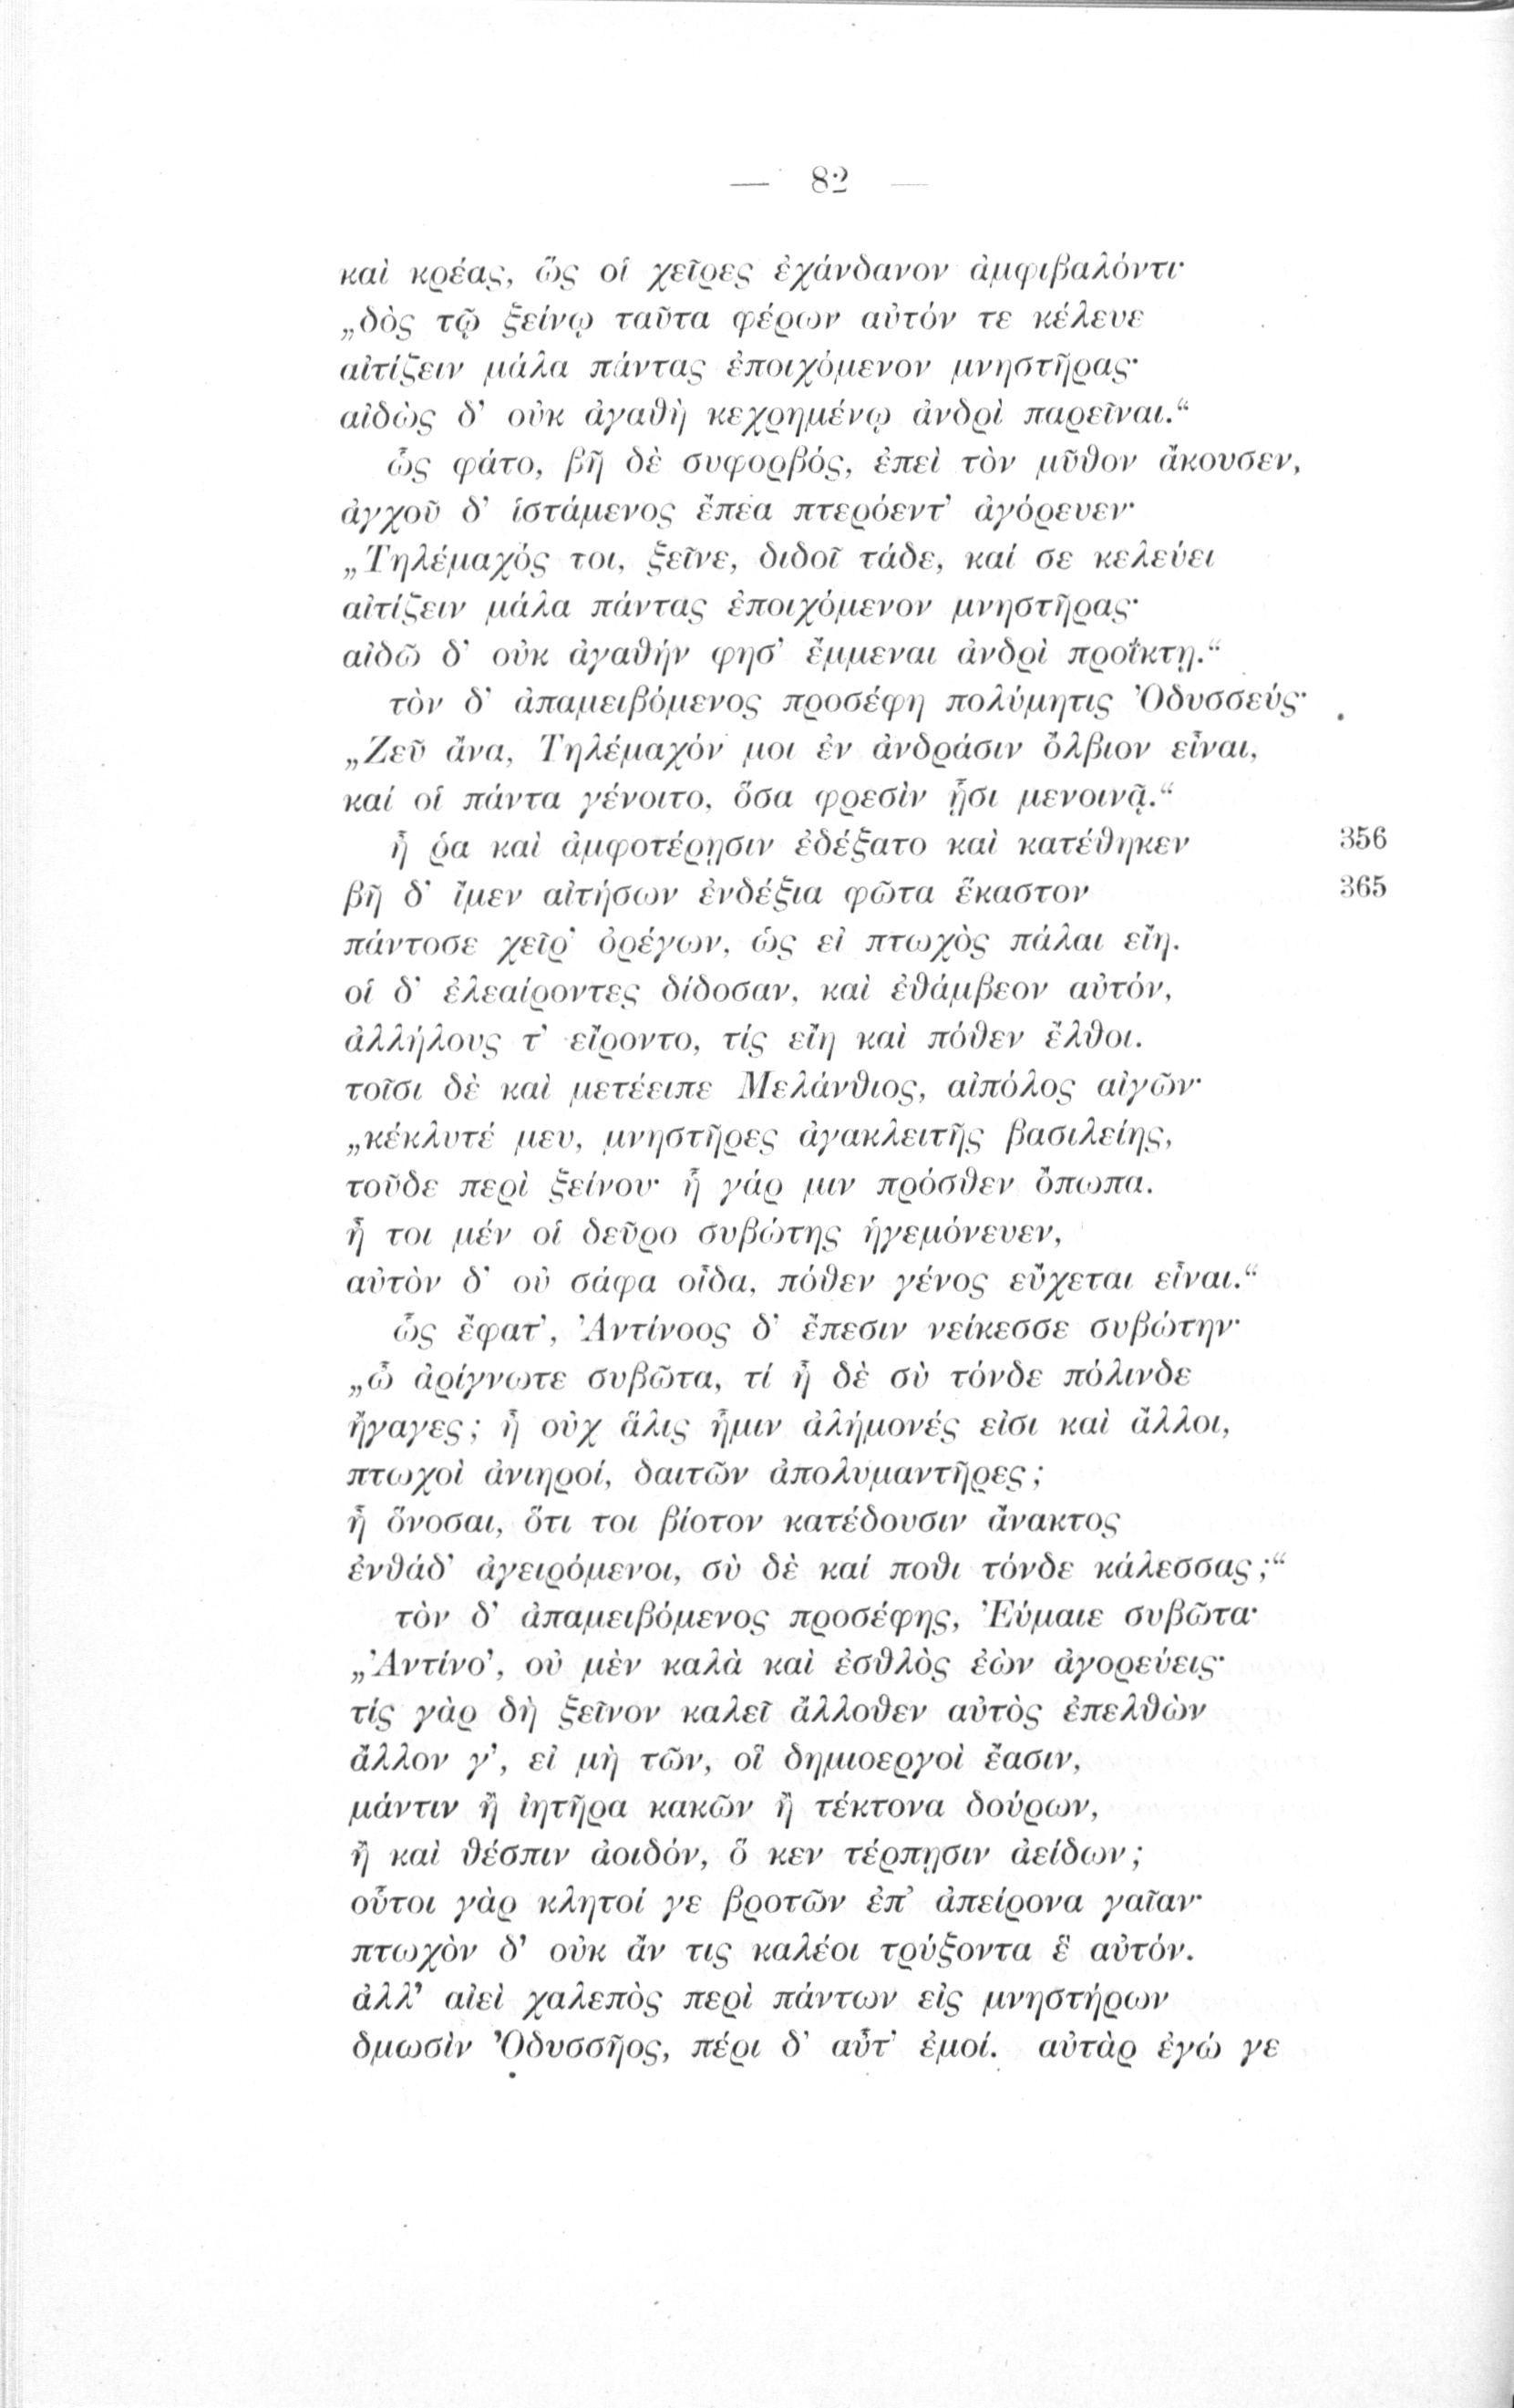 — 82 —
καὶ κρέας, ὥς οἱ χεῖρες ἐχάνδανον ἀμφιβαλόντι·
„δὸς τῷ ξείνῳ ταῦτα φέρων αὐτόν τε κέλευε
αἰτίζειν μάλα πάντας ἐποιχόμενον μνηστῆρας·
αἰδὼς δ' οὐκ ἀγαθὴ κεχρημένῳ ἀνδρὶ παρεῖναι.“
ὣς φάτο, βῆ δὲ συφορβός, ἐπεὶ τὸν μῦθον ἄκουσεν,
ἀγχοῦ δ' ἱστάμενος ἔπεα πτερόεντ' ἀγόρευεν·
„Τηλέμαχός τοι, ξεῖνε, διδοῖ τάδε, καί σε κελεύει
αἰτίζειν μάλα πάντας ἐποιχόμενον μνηστῆρας·
αἰδῶ δ' οὐκ ἀγαθήν φησ' ἔμμεναι ἀνδρὶ προΐκτῃ.“
τὸν δ' ἀπαμειβόμενος προσέφη πολύμητις Ὀδυσσεύς·
„Ζεῦ ἄνα, Τηλέμαχόν μοι ἐν ἀνδράσιν ὄλβιον εἶναι,
καί οἱ πάντα γένοιτο, ὅσα φρεσὶν ᾗσι μενοινᾷ.“
ἦ ῥα καὶ ἀμφοτέρῃσιν ἐδέξατο καὶ κατέθηκεν 356
βῆ δ' ἴμεν αἰτήσων ἐνδέξια φῶτα ἕκαστον 365
πάντοσε χεῖρ' ὀρέγων, ὡς εἰ πτωχὸς πάλαι εἴη.
οἱ δ' ἐλεαίροντες δίδοσαν, καὶ ἐθάμβεον αὐτόν,
ἀλλήλους τ' εἴροντο, τίς εἴη καὶ πόθεν ἔλθοι.
τοῖσι δὲ καὶ μετέειπε Μελάνθιος, αἰπόλος αἰγῶν·
„κέκλυτέ μευ, μνηστῆρες ἀγακλειτῆς βασιλείης,
τοῦδε περὶ ξείνου· ἦ γάρ μιν πρόσθεν ὄπωπα.
ἦ τοι μέν οἱ δεῦρο συβώτης ἡγεμόνευεν,
αὐτὸν δ' οὐ σάφα οἶδα, πόθεν γένος εὔχεται εἶναι.“
ὣς ἔφατ', Ἀντίνοος δ' ἔπεσιν νείκεσσε συβώτην·
„ὦ ἀρίγνωτε συβῶτα, τί ἦ δὲ σὺ τόνδε πόλινδε
ἤγαγες; ἦ οὐχ ἅλις ἧμιν ἀλήμονές εἰσι καὶ ἄλλοι,
πτωχοὶ ἀνιηροί, δαιτῶν ἀπολυμαντῆρες;
ἦ ὄνοσαι, ὅτι τοι βίοτον κατέδουσιν ἄνακτος
ἐνθάδ' ἀγειρόμενοι, σὺ δὲ καί ποθι τόνδε κάλεσσας;“
τὸν δ' ἀπαμειβόμενος προσέφης, Ἐύμαιε συβῶτα·
„Ἀντίνο', οὐ μὲν καλὰ καὶ ἐσθλὸς ἐὼν ἀγορεύεις·
τίς γὰρ δὴ ξεῖνον καλεῖ ἄλλοθεν αὐτὸς ἐπελθὼν
ἄλλον γ', εἰ μὴ τῶν, οἳ δημιοεργοὶ ἔασιν,
μάντιν ἢ ἰητῆρα κακῶν ἢ τέκτονα δούρων,
ἢ καὶ θέσπιν ἀοιδόν, ὅ κεν τέρπησιν ἀείδων;
οὗτοι γὰρ κλητοί γε βροτῶν ἐπ' ἀπείρονα γαῖαν·
πτωχὸν δ' οὐκ ἄν τις καλέοι τρύξοντα ἓ αὐτόν.
ἀλλ' αἰεὶ χαλεπὸς περὶ πάντων εἰς μνηστήρων
δμωσὶν Ὀδυσσῆος, πέρι δ' αὖτ' ἐμοί. αὐτὰρ ἐγώ γε